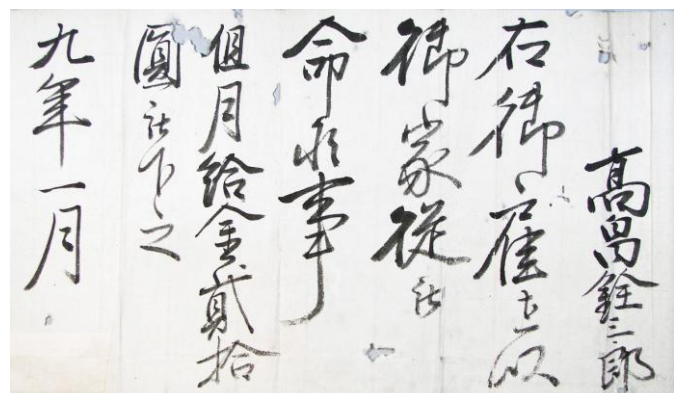 高畠銓三郎
右御雇を以
御家従被
命候事
但月給金貳拾
圓被下之
九年一月